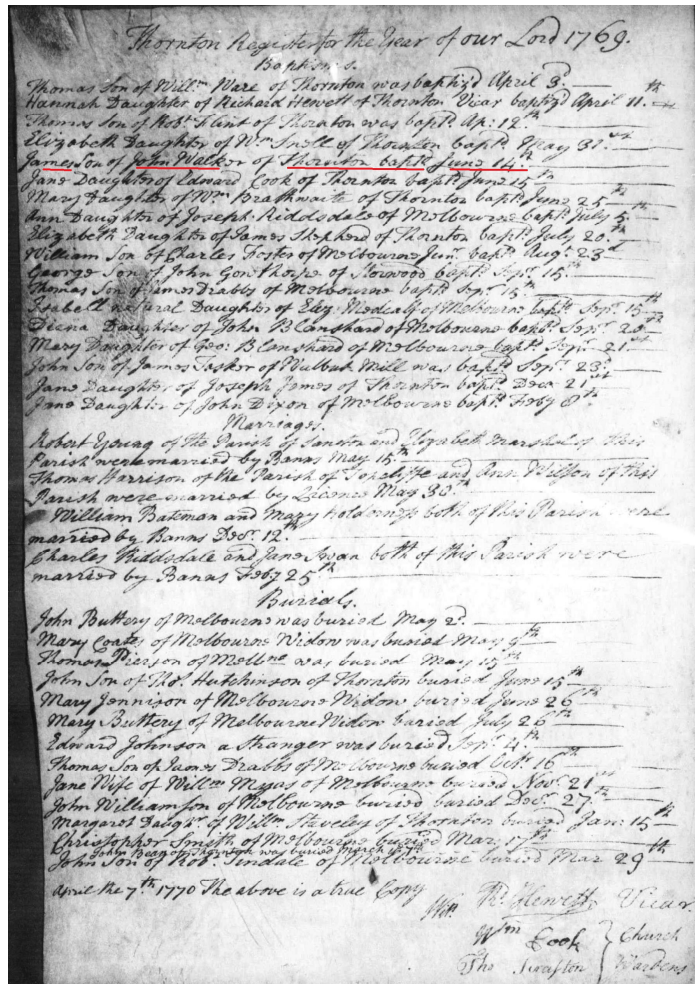 Thornton Register for the Year of our Lord 1769.
Baptisms.
Thomas Son of Willm Ware of Thornton was baptiz'd April 3d.
Hannah Daughter of Richard Hewett of Thornton Vicar baptiz'd April 11th
Thomas Son of Robt Flint of Thornton was bapt'd Ap: 12th
Elizabeth Daughter of Wm Snell of Thornton bapt'd May 31st
James Son of John Walker of Thornton bapt'd June 14th
Jane Daughter of Edward Cook of Thornton bapt'd June 15th
Mary Daughter of Wm Brathwaite of Thornton bapt'd June 25th
Ann Daughter of Joseph Riddsdale of Melbourne bapt'd July 5th
Elizabeth Daughter of James Shepherd of Thornton bapt'd July 20th
William Son of Charles Foster of Melbourne Junr bapt'd Augt 23d
George Son of John Gowthorpe of Storwood bapt'd Sepr 15th
Thomas Son of James Drabbs of Melbourne bapt'd Sepr 15th
Isabell natural Daughter of Eliz: Medcalf of Melbourne bapt'd Sepr 15th
Diena Daughter of John Blanshard of Melbourne bapt'd Sepr 20th
Mary Daughter of Geo: Blanshard of Melbourne bapt'd Sepr 21st
John Son of James Tasker of Walbut Mill was bapt'd Sepr 23d
Jane Daughter of Joseph James of Thornton bapt'd Decr 21st
Jane Daughter of John Dixon of Melbourne bapt'd Feby 8th
Marriages.
Robert Young of the Parish of and Elizabeth Marshal of this
Parish were married by Banns May 15th
Thomas Harrison of the Parish of Topcliffe and Ann Wilson of this
Parish were married by Licence May 30th
William Bateman and Mary Holderness both of this Parish were
married by Banns Decr 12th
Charles Riddsdale and Jane Swan both of this Parish were
married by Banns Feby 25th
Burials.
John Buttery of Melbourne was buried May 2d.
Mary Coates of Melbourne Widow was buried May 9th
Thomas Pierson of Melbne was buried May 15th
John Son of Thos Hutchinson of Thornton buried June 15th
Mary Jennison of Melbourne Widow buried June 26th
Mary Buttery of Melbourne Widow buried July 26th
Edward Johnson a Stranger was buried Sepr 4th
Thomas Son of James Drabbs of Melbourne buried Octr 16th
Jane Wife of Willm Megus of Melbourne buried Novr 21st
John Williamson of Melbourne buried buried Decr 27th
Margaret Daughr of Willm Staveley of Thornton buried Jan: 15th
Christopher Smith of Melbourne buried Mar: 17th
John was buried March
John Son of Rob: Tindale of Melbourne buried Mar 29th
April the 7th 1770 The above is a true Copy
Wit: Rd Hewett, Vicar
Wm Cook } Church
Tho Swafton } Wardens